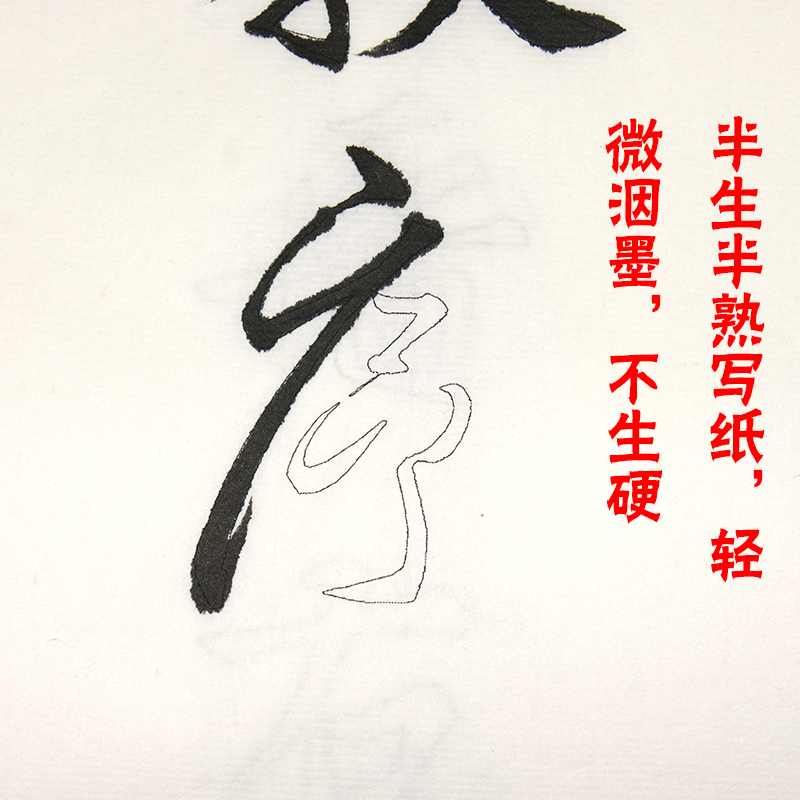 半生半熟写纸，轻
微洇墨，不生硬
序